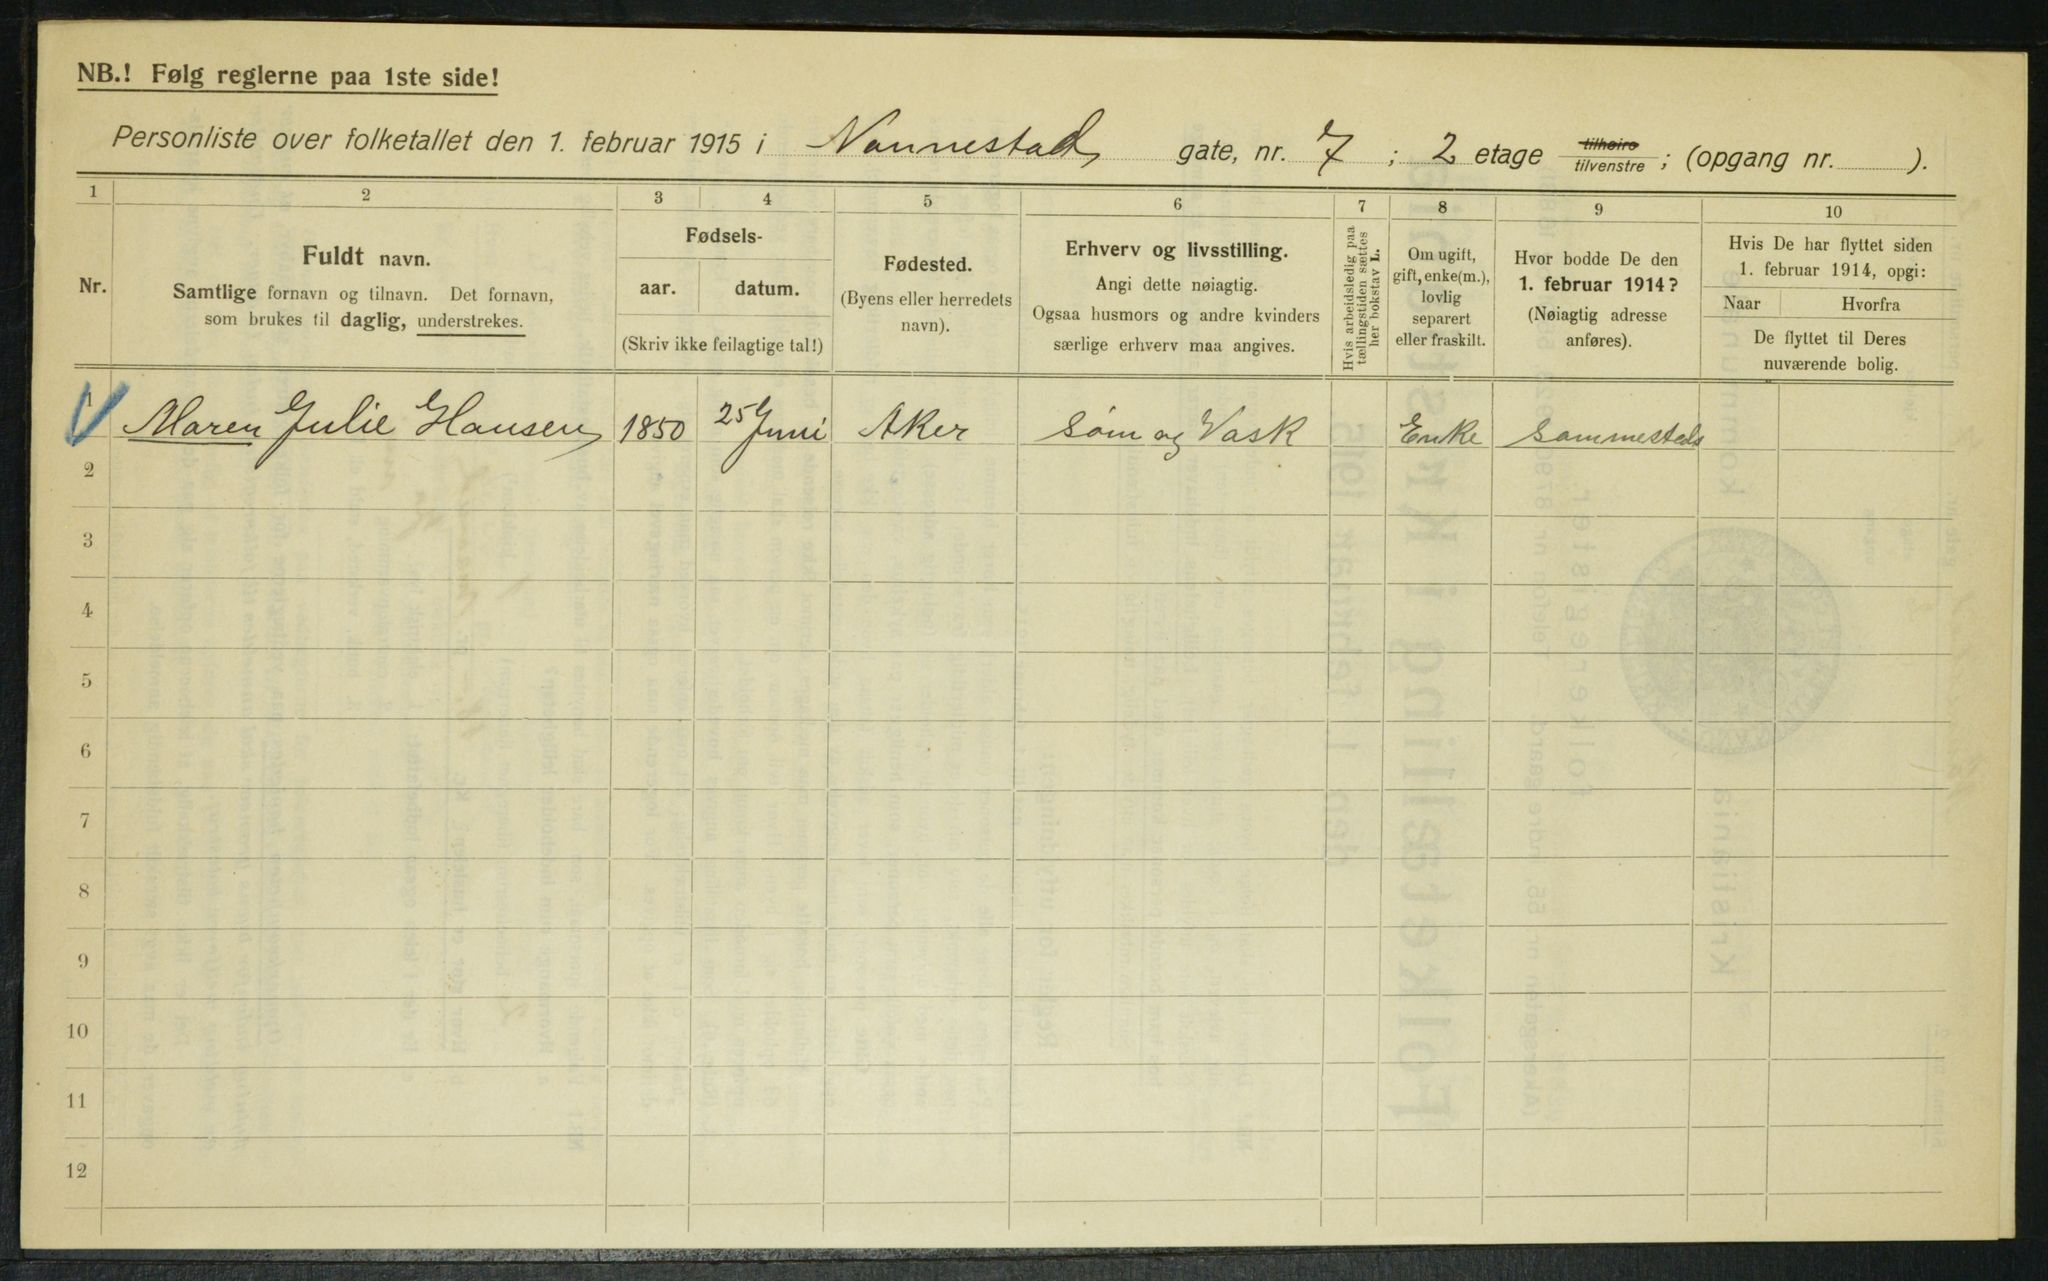 NB.! Følg reglerne paa 1ste side!
Personliste over folketallet den 1. februar 1915 i Nannestad gate, nr. 7 ; 2 etage tilhøire tilvenstre ; (opgang nr. ).
1 2 3 4 5 6 7 8 9 10
Nr.
Fuldt navn.
Samtlige fornavn og tilnavn. Det fornavn,
som brukes til daglig, understrekes.
Fødsels-
aar. datum.
(Skriv ikke feilagtige tal!)
Fødested.
(Byens eller herredets
navn).
Erhverv og livsstilling.
Angi dette nøiagtig.
Ogsaa husmors og andre kvinders
særlige erhverv maa angives.
Hvis arbeidsledig paa
tællingstiden sættes
her bokstav L.
Om ugift,
gift, enke(m.),
lovlig
separert
eller fraskilt.
Hvor bodde De den
1. februar 1914?
(Nøiagtig adresse
anføres).
Hvis De har flyttet siden
1. februar 1914, opgi:
Naar Hvorfra
De flyttet til Deres
nuværende bolig.
1 Maren Julie Hansen 1850 25 Juni Aker Søm og Vask Enke Sammesteds
2
3
4
5
6
7
8
9
10
11
12